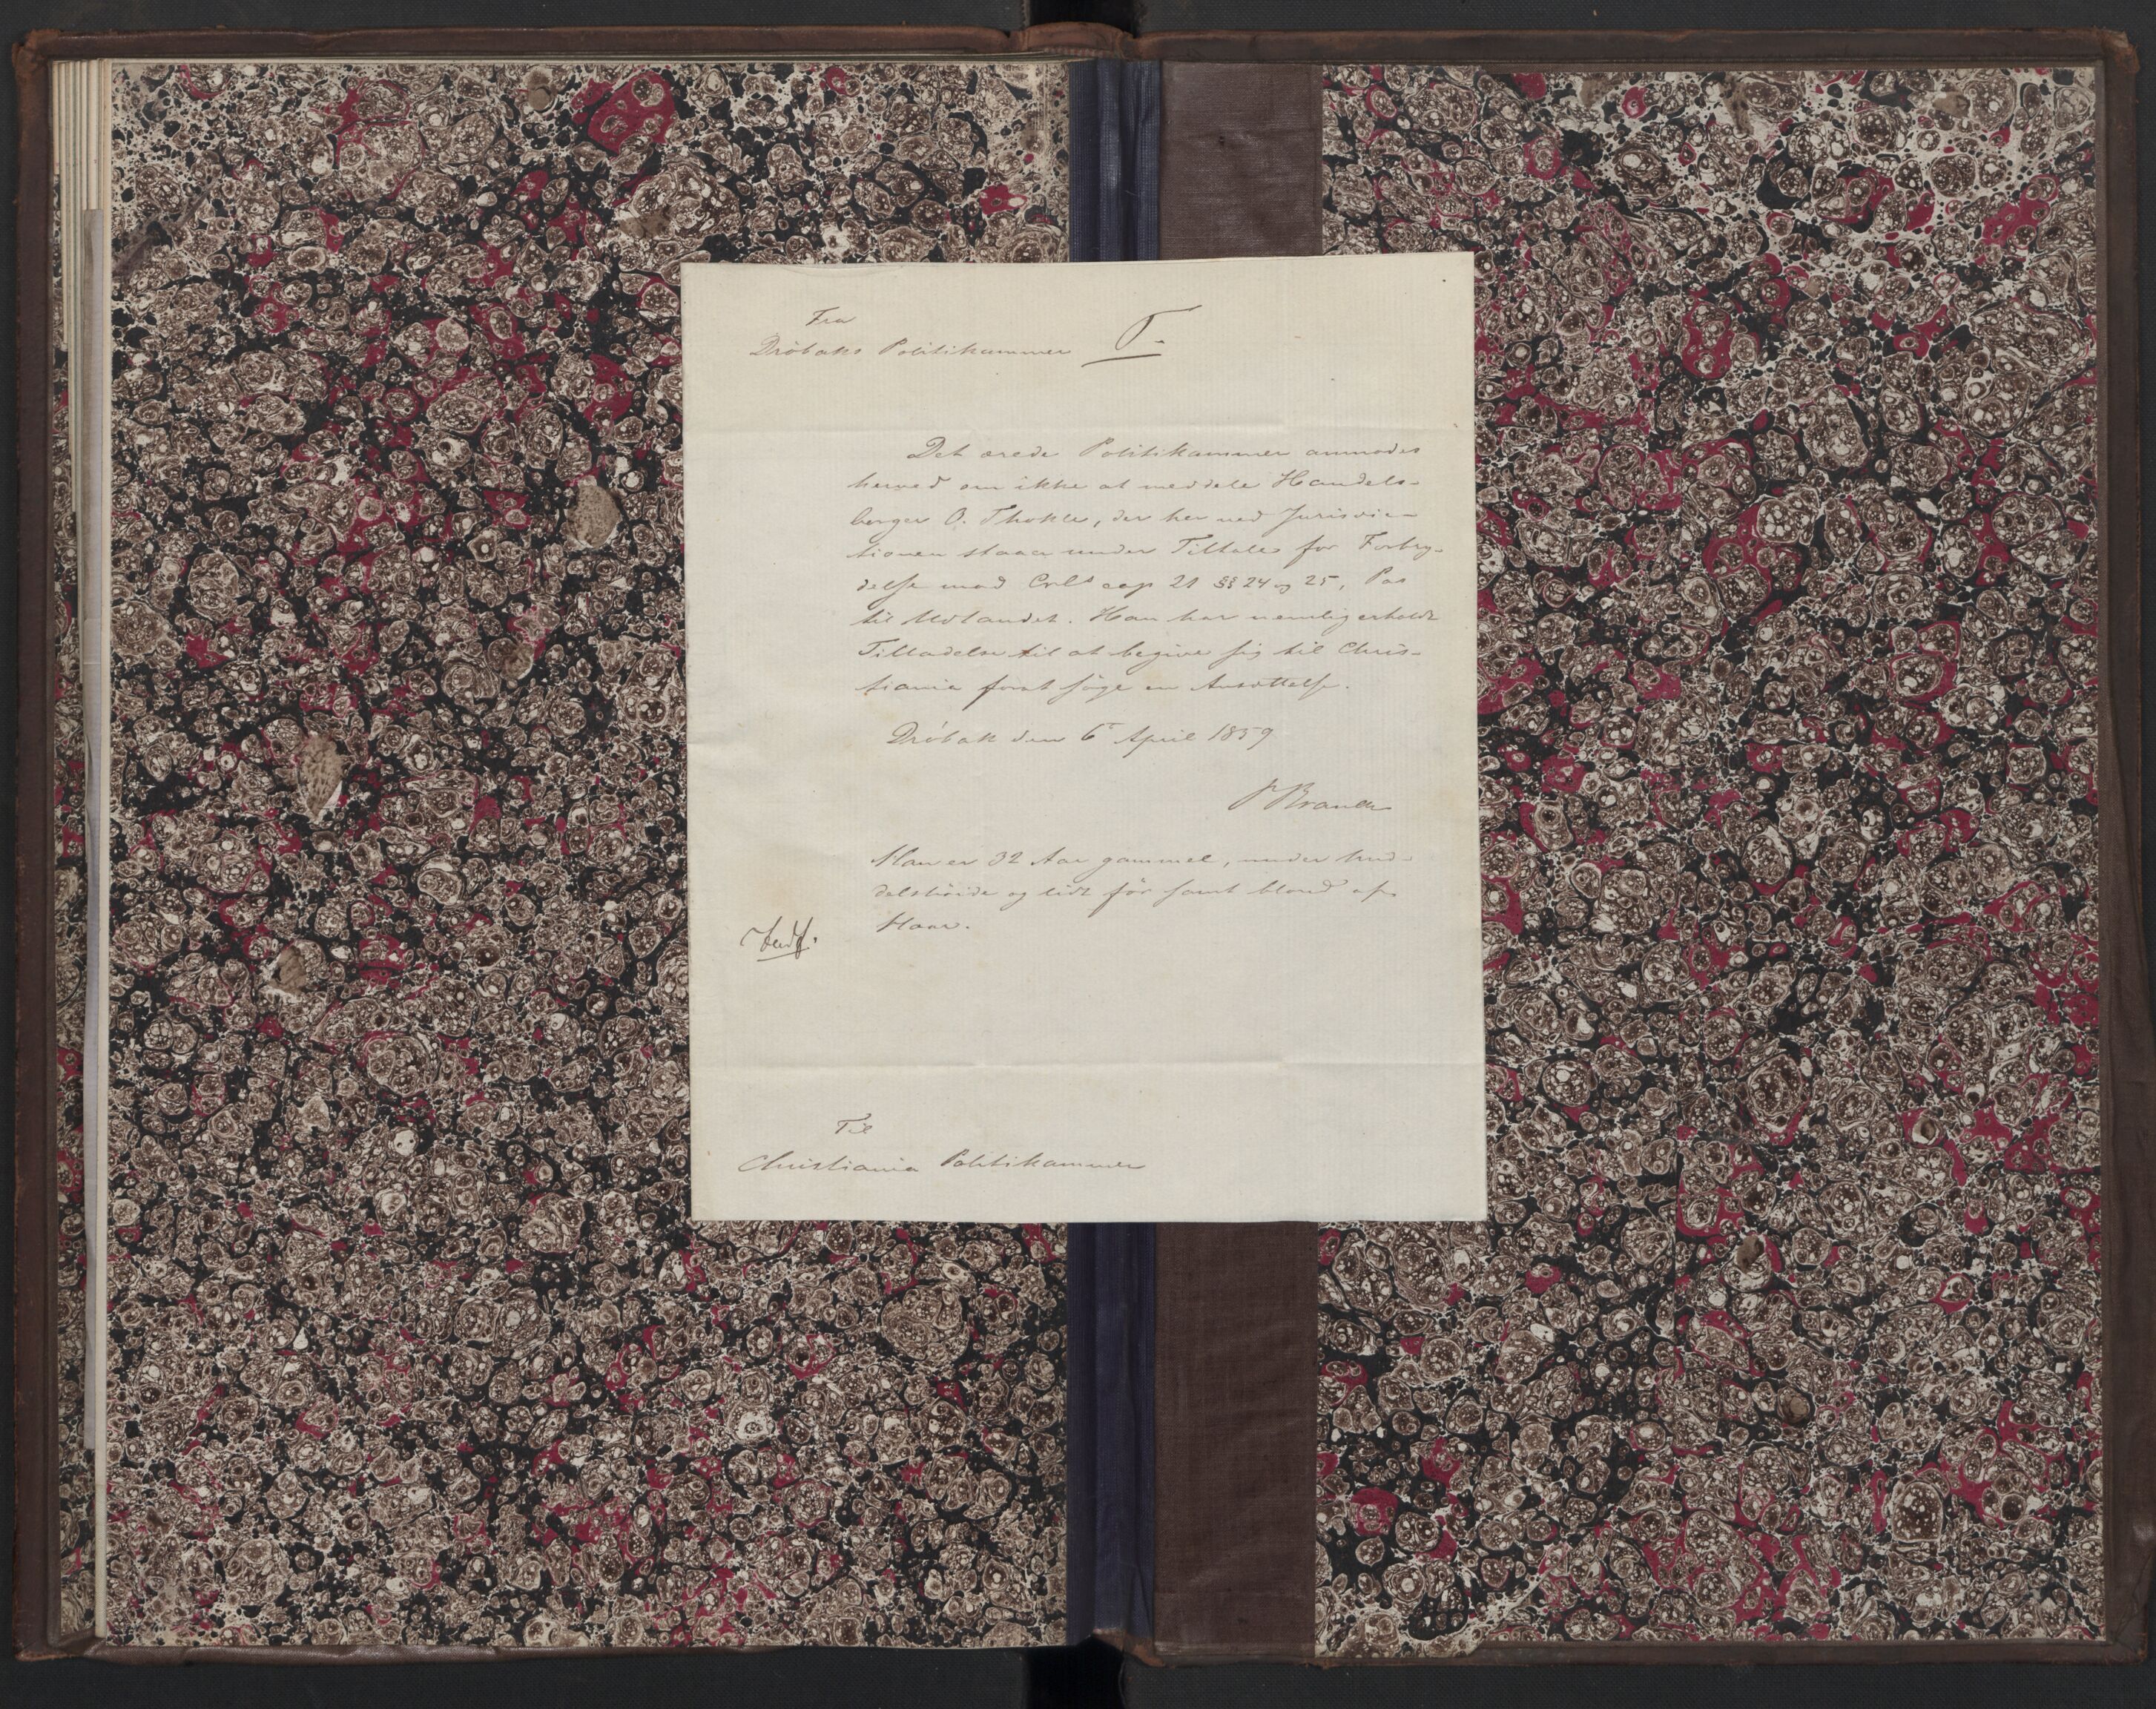 Fra
Dröbaks Politikammer T.
Det ærede Politikammer anmodes
herved om ikke at meddele Handels-
borger O. Thokle, der her ved Jurisdic-
tionen staar under Tiltale for Forbry-
delse mod Crl cap 21 §§ 24 og 25, Pas
til Udlandet. Han har nemlig erholdt
Tilladelse til at begive sig til Chris-
tiania forat søge en Ansættelse.
Dröbak den 6 April 1859
Han er 32 Aar gammel, under Mid-
delshöide og lidt för samt blond af
Haar.
Til
Christiania Politikammer